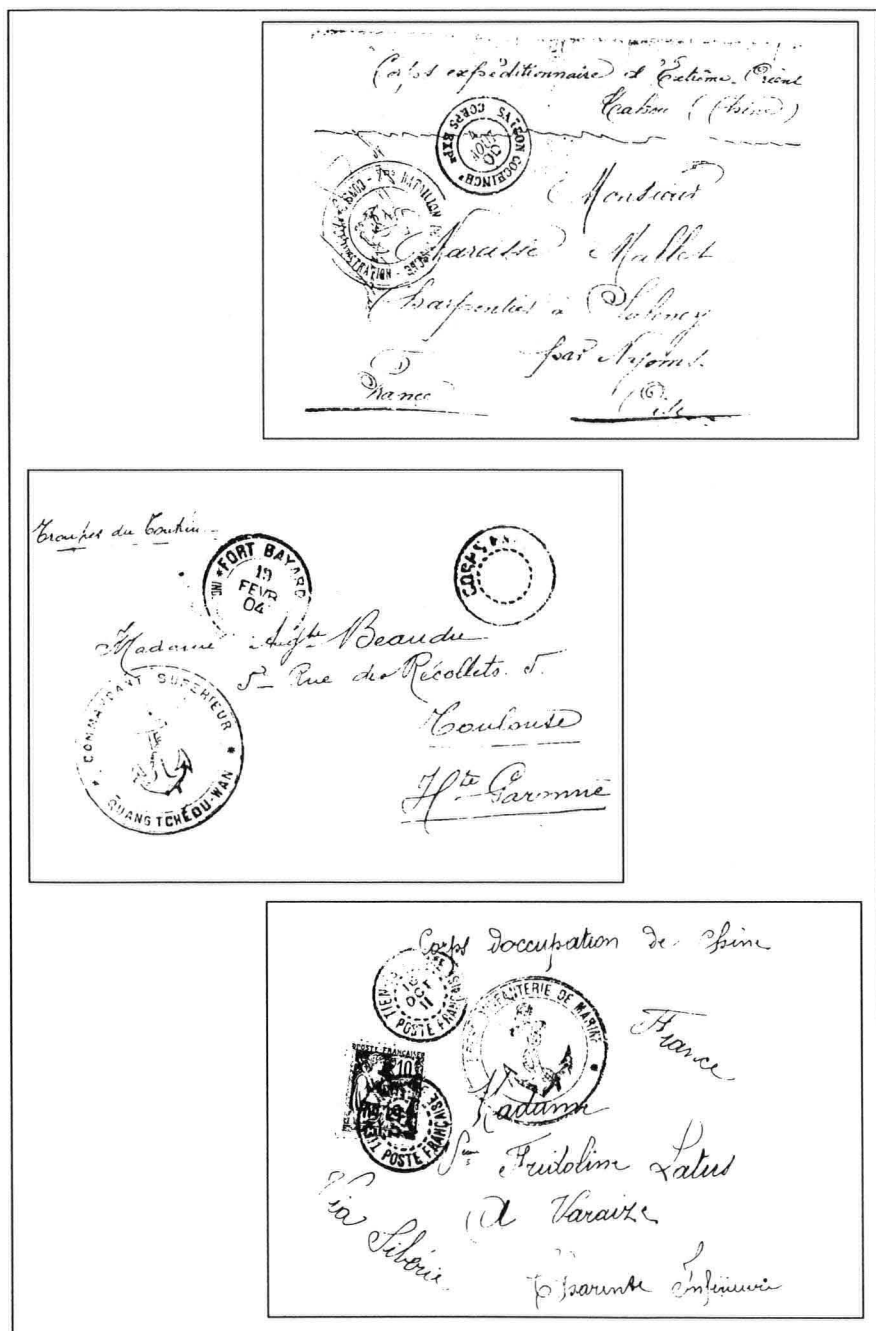 Corps expéditionnaire d'Extrême-Orient
Takou (Chine)
CORPS EXP
COCHINCH
AOUT
00
BATAILLON
Monsieur
Narcisse Mallet
Charpentier à
par
France
Oise
Troupes du Tonkin
FORT BAYARD
19
FEVR
04
CORPS
Madame Beaudu
5 Rue des Récollets. 5.
Toulouse
Hte Garonne
* COMMANDANT SUPERIEUR *
QUANG TCHÉOU-WAN
Corps d'occupation de Chine
POSTE FRANÇAISE
OCT
11
INFANTERIE DE MARINE *
France
POSTE FRANÇAISE
10
POSTE FRANÇAISE
Madame
Fridoline Latus
A Varaize
Via Sibérie
Charente Inférieure